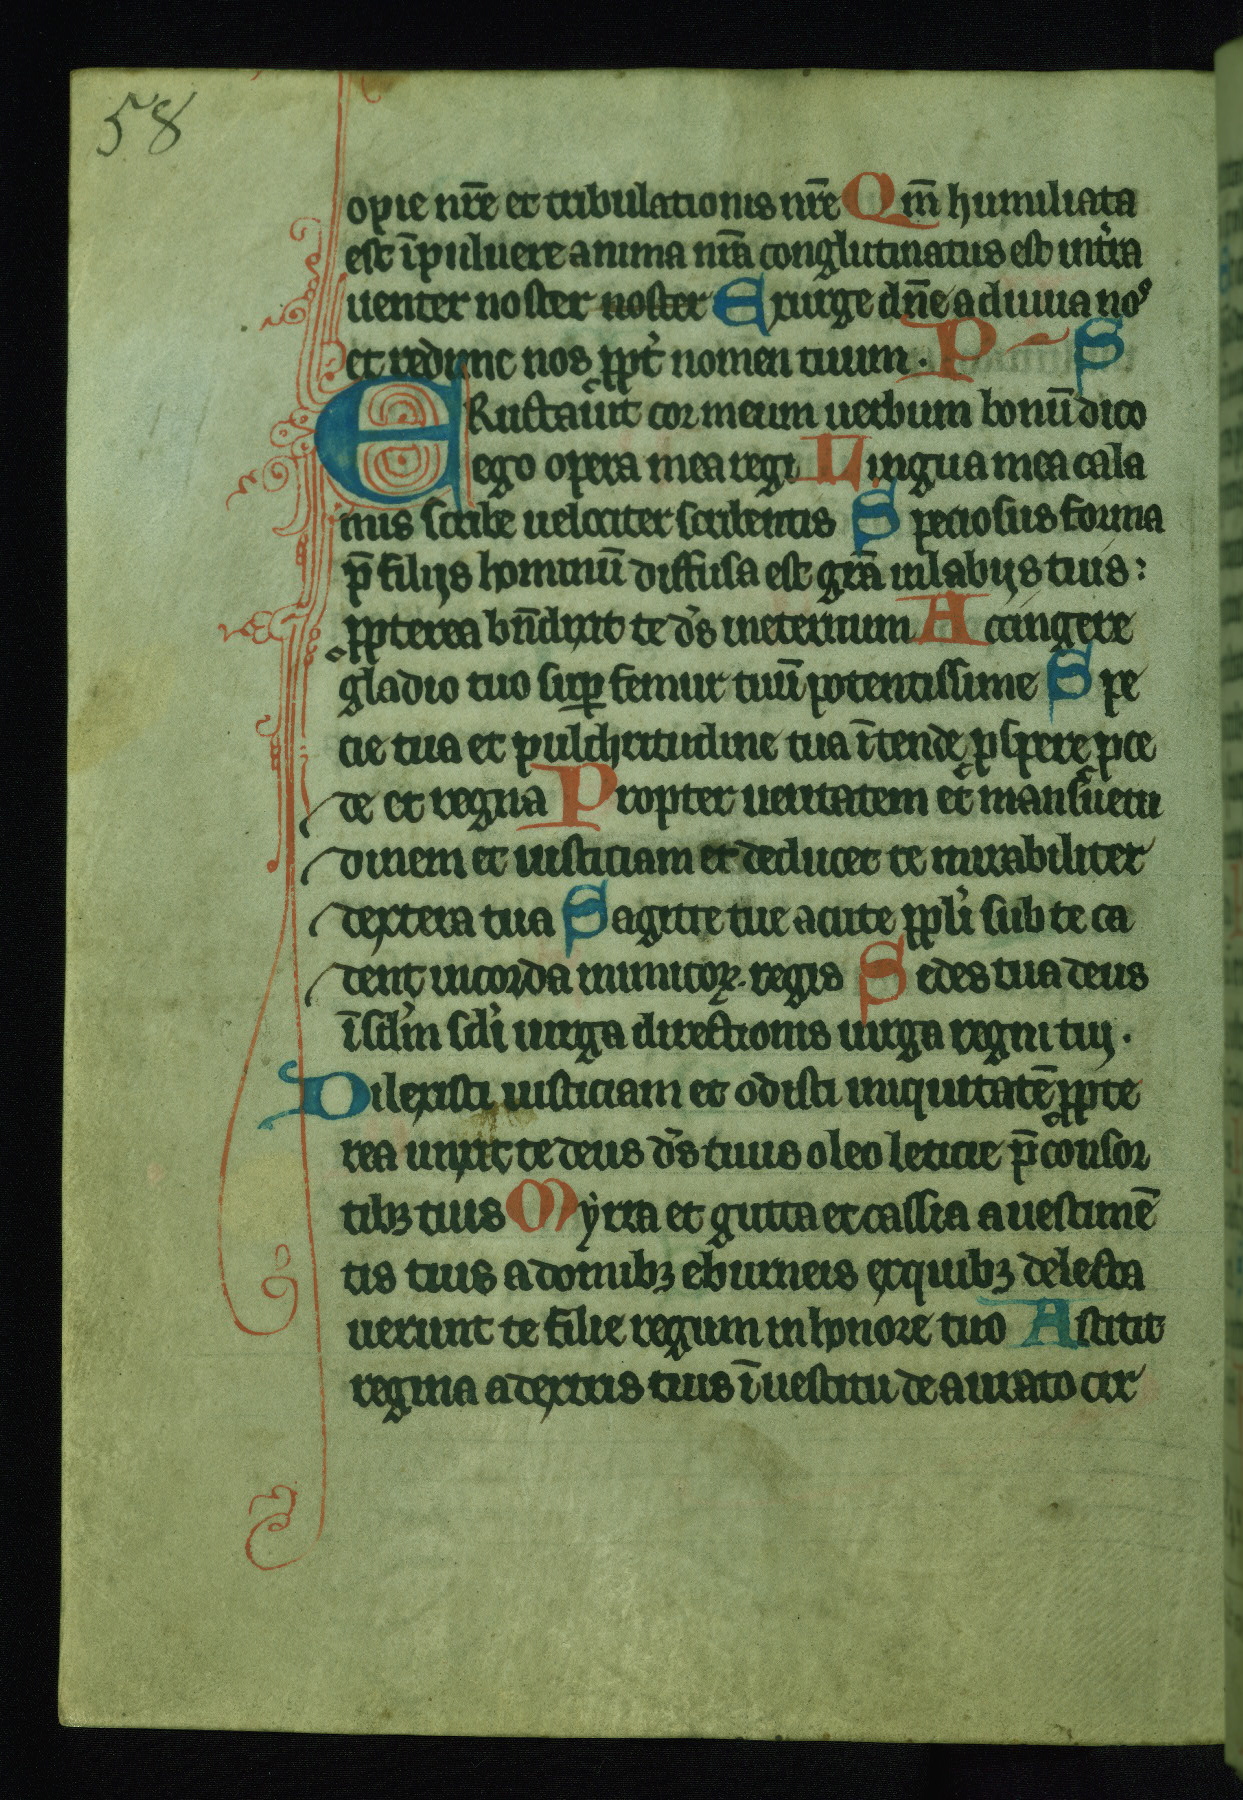 58
opie nr̄e et tribulationis nr̄e Qm̄ humiliata
est ī puluere anima nr̄a conglutinatus est in tr̄ra
uenter noster noster Exurge dn̄e adiuua nos
et redime nos ꝓpt̄ nomen tuum . P S
ERuctauit cor meum uerbum bonū dico
ego opera mea regi Lingua mea cala
mus scribe uelociter scribentis Speciosus forma
p̄ filijs hominū diffusa est gr̄a in labijs tuis :
ꝓpterea bn̄dixit te ds̄ ineternum Accingere
gladio tuo suꝑ femur tuū potentissime Spe
cie tua et pulchritudine tua ītende ꝓspere ꝓce
de et regna Propter ueritatem et mansuetu
dinem et iusticiam et deducet te mirabiliter
dextera tua Sagitte tue acute ppl̄i sub te ca
dent in corda inimicoꝝ . regis Sedes tua deus
ī sclm̄ scl̄i uirga directionis uirga regni tuj .
Dilexisti iusticiam et odisti iniquitatē ꝓpte
rea unxit te deus ds̄ tuus oleo leticie p̄ consor
tibꝫ tuis Myrra et gutta et cassia a uestimē
tis tuis a domibꝫ eburneis ex quibꝫ delecta
uerunt te filie regum in honore tuo Astitit
regina a dextris tuis ī uestitu deaurato cir